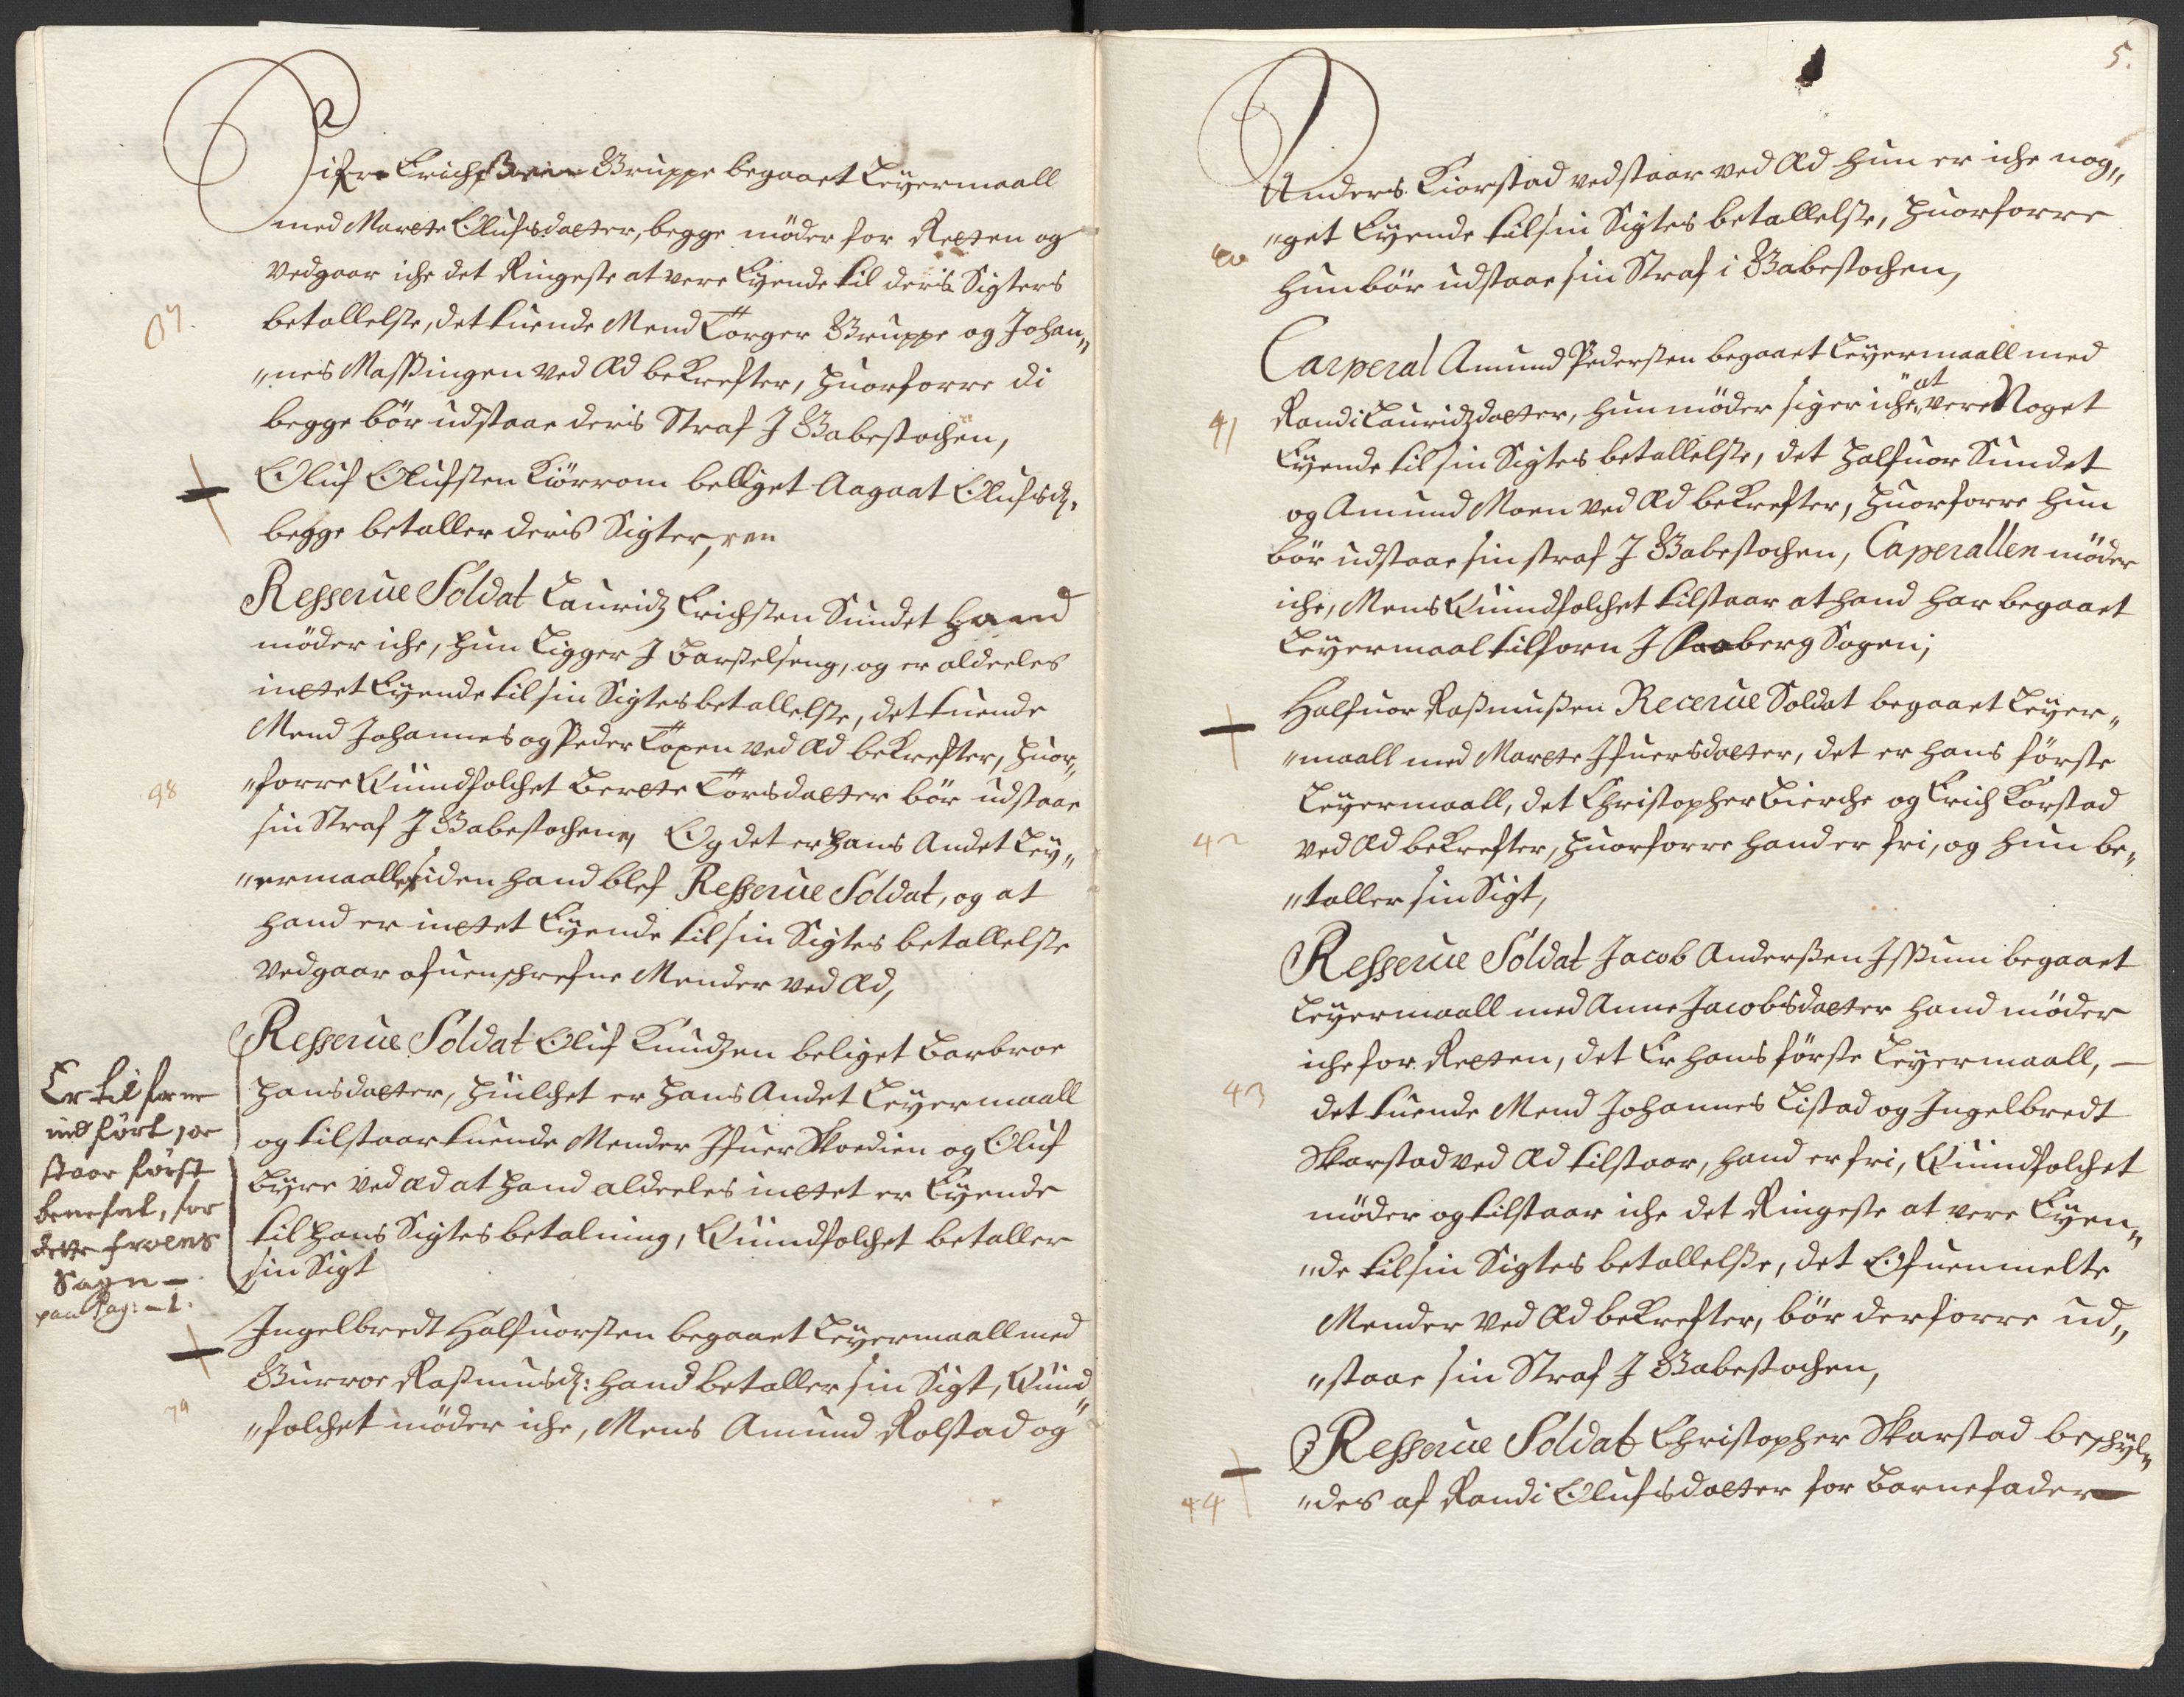 Erichßen Gruppe begaaet Leÿermaall
med Marete Olufsdatter, begge møder for Retten og
Vedgaar iche det Ringeste at vere Eÿende til deris Sigters
betallelse, det tuende Mend Torger Gruppe og Johan„
„nes Massingen ved Æd bekrefter, huorforre di
begge bør udstaae deris Straf J Gabestochen,
Oluf Olufsen Kiörrom belliget Aagaat Olufsdz.
begge betaller deris Sigter,
Resserue Soldat Lauridz Erichsen Sundet Hand
møder iche, hun Ligger J Barselseng, og er aldeeles
inttet Eÿende til sin Sigtes betallelse, det tuende
Mend Johannes og Peder Toxen ved Æd bekrefter, huor„
„forre Quindfolchet Berete Torsdatter bør udstaae
sin Straf J Gabestochene, Og det er hans Andet Leÿ„
„ermaalle siden hand blef Resserue Soldat, og at
hand er inttet Eÿende til sin Sigtes betallelse
Vedgaar ofuenschrefne Mender ved Æd,
Resserue Soldat Oluf Knudzen beliget Barbroe
Hansdatter, huilchet er hans Andet Leÿermaall
og tilstaar tuende Mender Jfuer Skoedien og Oluf
Bÿre ved æd at hand aldeeles inttet er Eÿende
til hans Sigtes betalning, Quindfolchet betaller
sin Sigt
Er til forne
ind ført,
staar først
benefnt, for
dette froens
Sagn –
paa Pag: – 1.
Ingelbredt Halfuorsen begaaet Leÿermaall med
Gurroe Rasmusdz: hand betaller sin Sigt, Quind„
„folchet møder iche, Mens Amund Rolstad og
98
5.
Anders Kiorstad vedstaar ved Æd hun er iche nog„
„get Eÿende til sin Sigtes betallelse, huorforre
hun bør udstaae sin Straf i Gabestochen,
40
Carperal Amund Pedersen begaaet Leÿermaall med
Randi Lauridzdatter, hun møder siger iche at vere Noget
Eÿende til sin Sigtes betallelse, det Halfuor Sundet
og Amund Moen ved Æd bekrefter, huorforre hun
bør udstaae sin straf J Gabestochen, Caperallen møder
iche, Mens Quindfolchet tilstaar at hand har begaaet
Leÿermaal tilforn J Faaberg Sogen;
41
Halfuor Rasmußen Recerue Soldat begaaet Leÿer„
„maall med Marete Jfuersdatter, det er hans første
Leÿermaall, det Christopher Bierche og Erich Korstad
ved Æd bekrefter, huorforre hand er fri, og hun be„
„taller sin Sigt,
42
Resserue Soldat Jacob Anderßen Jssum begaaet
Leÿermaall med Anne Jacobsdatter hand møder
iche for Retten, det Er hans første Leÿermaall, –
det tuende Mend Johannes Listad og Ingelbredt
Skarstad ved Æd tilstaar, hand er fri, Quindfolchet
møder og tilstaar iche det Ringeste at vere Eÿen„
„de til sin Sigtes betallelße, det Ofuenmelte
Mender ved Æd bekrefter, bør derforre ud„
„staae sin Straf J Gabestochen,
43
Resserue Soldat Christopher Skarstad beschÿl„
„des af Randi Olufsdatter for Barnefader
44